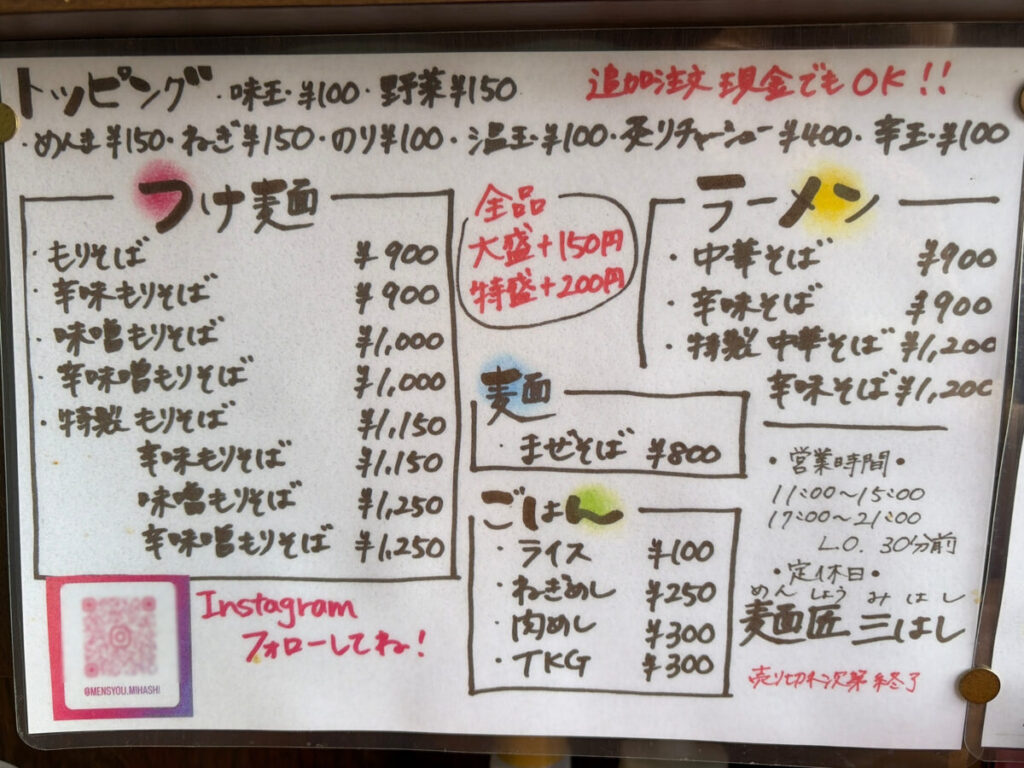 トッピング ・味玉・¥100・野菜¥150
追加注文 現金でもOK!!
・めんま¥150・ねぎ¥150・のり¥100・温玉・¥100・炙りチャーシュー¥400・辛玉・¥100
つけ麺
・もりそば ¥900
・辛味もりそば ¥900
・味噌もりそば ¥1,000
・辛味噌もりそば ¥1,000
・特製もりそば ¥1,150
辛味もりそば ¥1,150
味噌もりそば ¥1,250
辛味噌もりそば ¥1,250
全品
大盛+150円
特盛+200円
ラーメン
・中華そば ¥900
・辛味そば ¥900
・特製 中華そば ¥1,200
辛味そば ¥1,200
麺
・まぜそば ¥800
ごはん
・ライス ¥100
・ねぎめし ¥250
・肉めし ¥300
・TKG ¥300
・営業時間・
11:00〜15:00
17:00〜21:00
L.O. 30分前
・定休日・
めん しょう み は し
麺匠 三はし
売り切れ次第終了
Instagram
フォローしてね!
@MENSYOU.MIHASHI